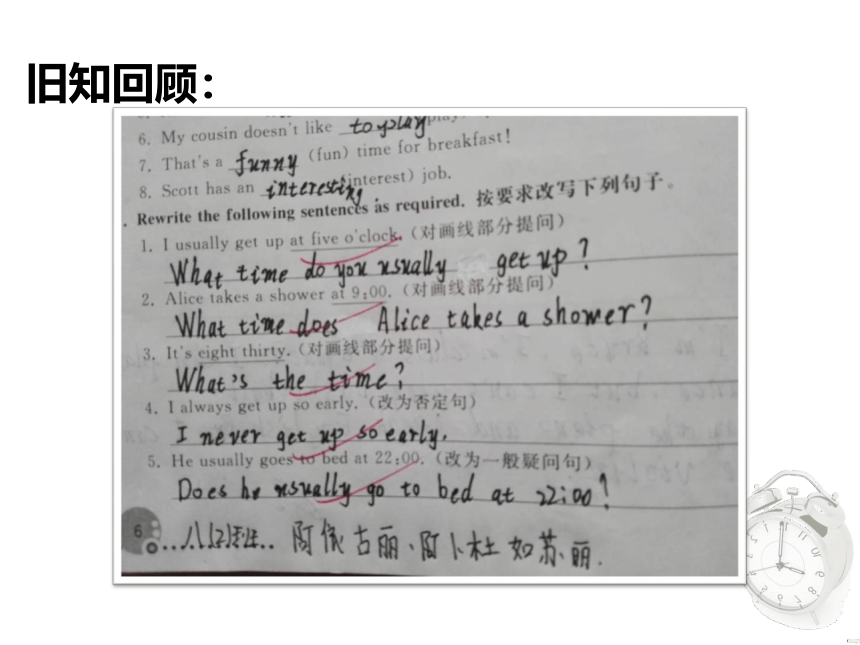 旧知回顾：
6. My cousin doesn't like to play
7. That's a funny (fun) time for breakfast!
8. Scott has an interesting (interest) job.
. Rewrite the following sentences as required. 按要求改写下列句子。
1. I usually get up at five o'clock. (对画线部分提问)
What time do you usually get up?
2. Alice takes a shower at 9:00. (对画线部分提问)
What time does Alice takes a shower?
3. It's eight thirty. (对画线部分提问)
What's the time?
4. I always get up so early. (改为否定句)
I never get up so early.
5. He usually goes to bed at 22:00. (改为一般疑问句)
Does he usually go to bed at 22:00?
6
...八(2)班... 阿依古丽、阿卜杜如苏丽.